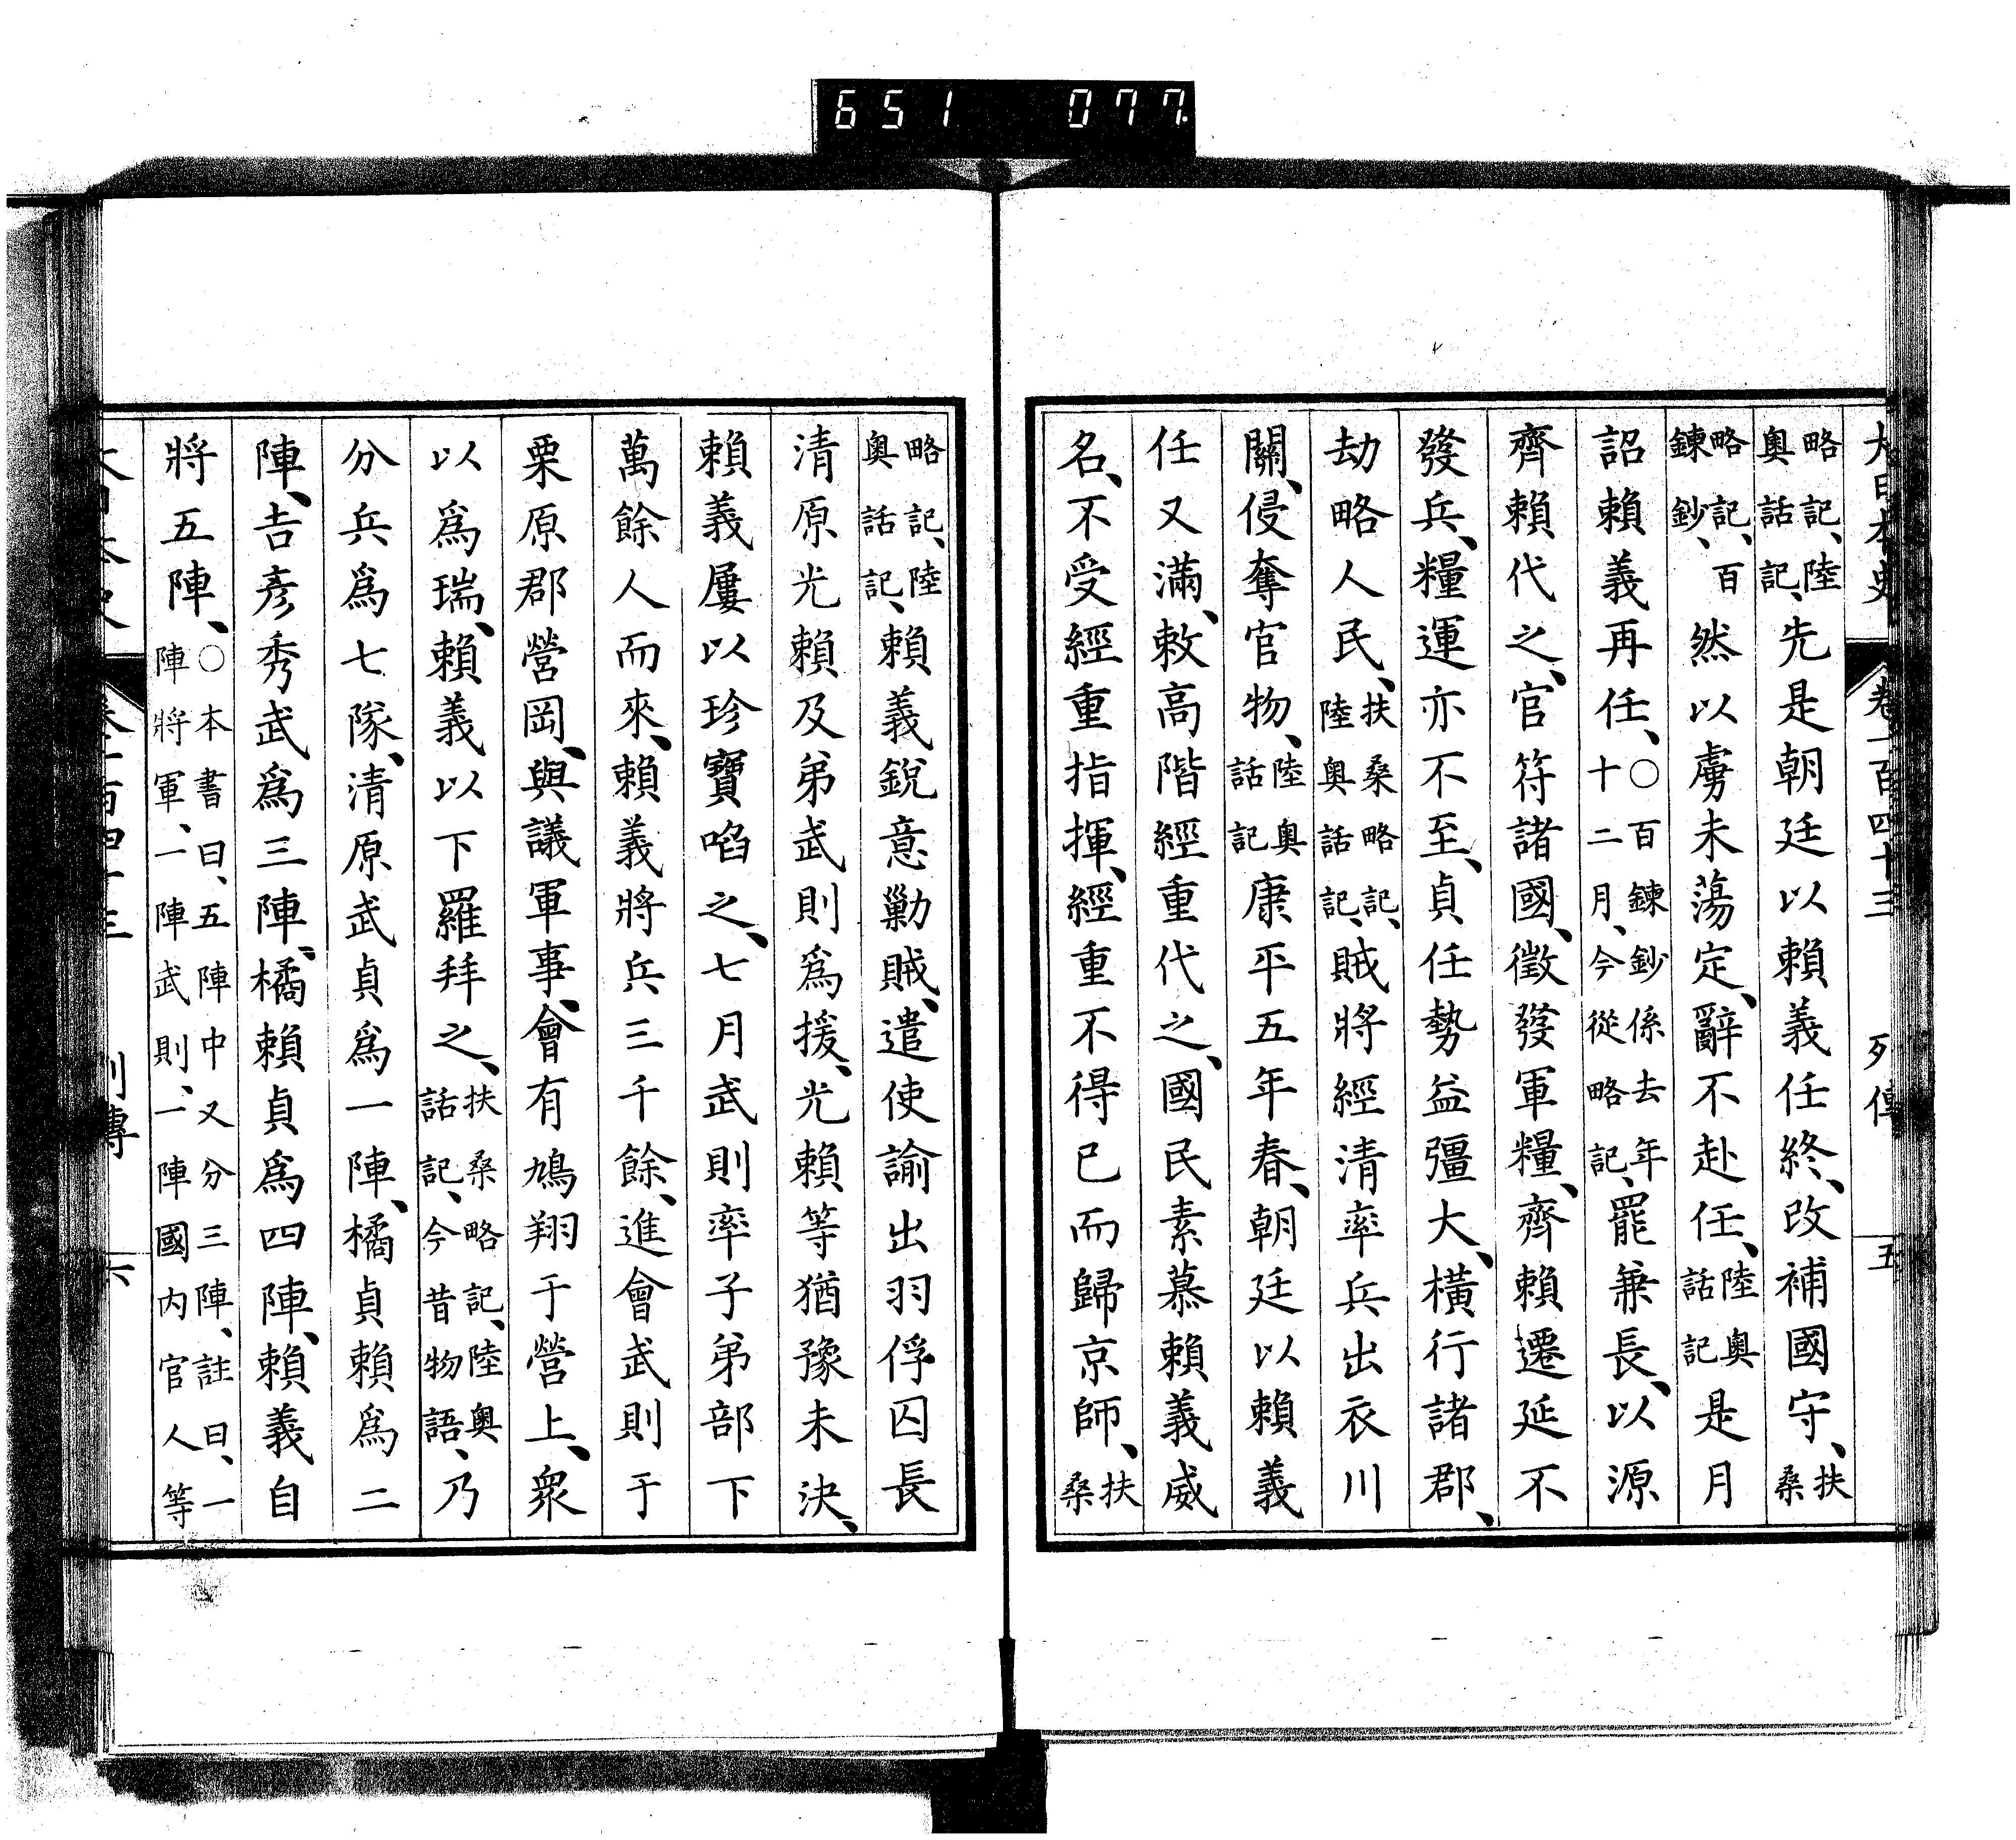 651 077
大日本史 卷一百四十三 列傳 五
略記、陸奧話記、先是朝廷以賴義任終、改補國守、扶桑
略記、百鍊鈔、然以虜未蕩定、辭不赴任、陸奧話記是月
詔賴義再任、○百鍊鈔係去年十二月、今從略記、罷兼長、以源
齊賴代之、官符諸國、徵發軍糧、齊賴遷延不
發兵、糧運亦不至、貞任勢益彊大、橫行諸郡、
劫略人民、扶桑略記、陸奧話記、賊將經清率兵出衣川
關、侵奪官物、陸奧話記康平五年春、朝廷以賴義
任又滿、敕高階經重代之、國民素慕賴義威
名、不受經重指揮、經重不得已而歸京師、扶桑
略記、陸奧話記、賴義銳意勦賊、遣使諭出羽俘囚長
清原光賴及弟武則爲援、光賴等猶豫未決、
賴義屢以珍寶啗之、七月武則率子弟部下
萬餘人而來、賴義將兵三千餘、進會武則于
栗原郡營岡、與議軍事、會有鳩翔于營上、衆
以爲瑞、賴義以下羅拜之、扶桑略記、陸奧話記、今昔物語、乃
分兵爲七隊、清原武貞爲一陣、橘貞賴爲二
陣、吉彥秀武爲三陣、橘賴貞爲四陣、賴義自
將五陣、○本書曰、五陣中又分三陣、註曰、一陣將軍、一陣武則、一陣國內官人等
大日本史 卷一百四十三 列傳 六